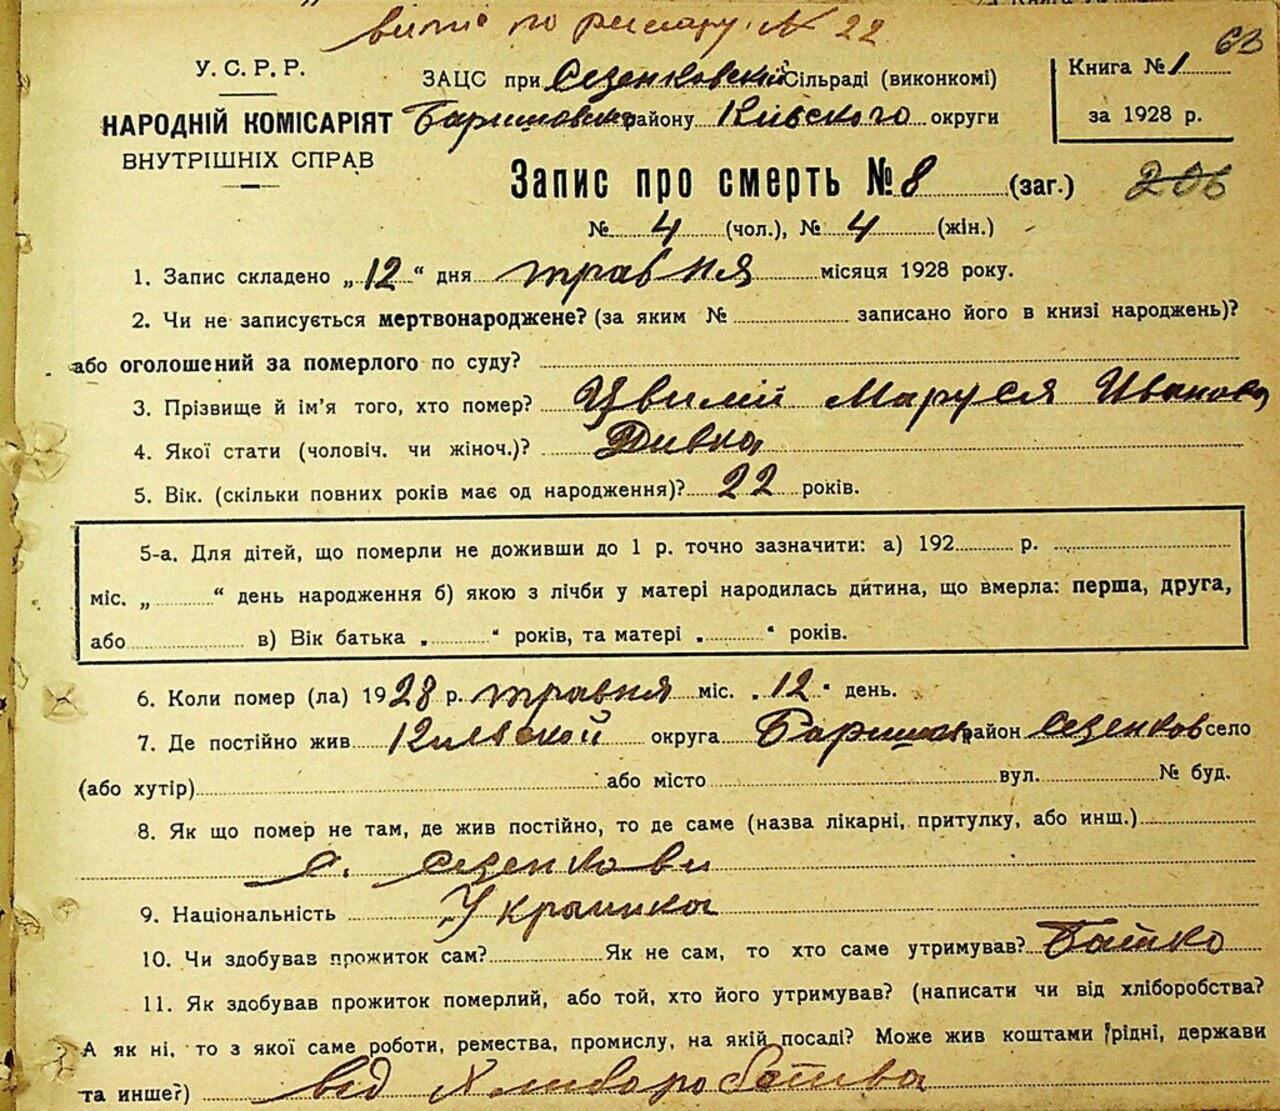 випис по реєстру № 22
63
У. С. Р. Р.
НАРОДНІЙ КОМІСАРІЯТ
ВНУТРІШНІХ СПРАВ
ЗАЦС при Сезенковский Сільраді (виконкомі)
району Київского округи
Книга № 1
за 1928 р.
Запис про смерть № 8 (заг.)
206
№ 4 (чол.), № 4 (жін.)
1. Запис складено „12“ дня травня місяця 1928 року.
2. Чи не записується мертвонароджене? (за яким № записано його в книзі народжень)?
або оголошений за померлого по суду?
3. Прізвище й ім'я того, хто помер? Цвилій Маруся Иванова
4. Якої стати (чоловіч. чи жіноч.)? Дивка
5. Вік. (скільки повних років має од народження)? 22 років.
5-а. Для дітей, що померли не доживши до 1 р. точно зазначити: а) 192 р.
міс. „ “ день народження б) якою з лічби у матері народилась дитина, що вмерла: перша, друга,
або в) Вік батька „ “ років, та матері „ “ років.
6. Коли помер (ла) 1928 р. травня міс. „12“ день.
7. Де постійно жив Килвской округа Баришов район Сезенков село
(або хутір) або місто вул. № буд.
8. Як що помер не там, де жив постійно, то де саме (назва лікарні, притулку, або инш.)
с. Сезенкови
9. Національність Украинка
10. Чи здобував прожиток сам? Як не сам, то хто саме утримував? Батко
11. Як здобував прожиток померлий, або той, хто його утримував? (написати чи від хліборобства?
А як ні, то з якої саме роботи, ремества, промислу, на якій посаді? Може жив коштами рідні, держави
та инше?) від Хлиборобства